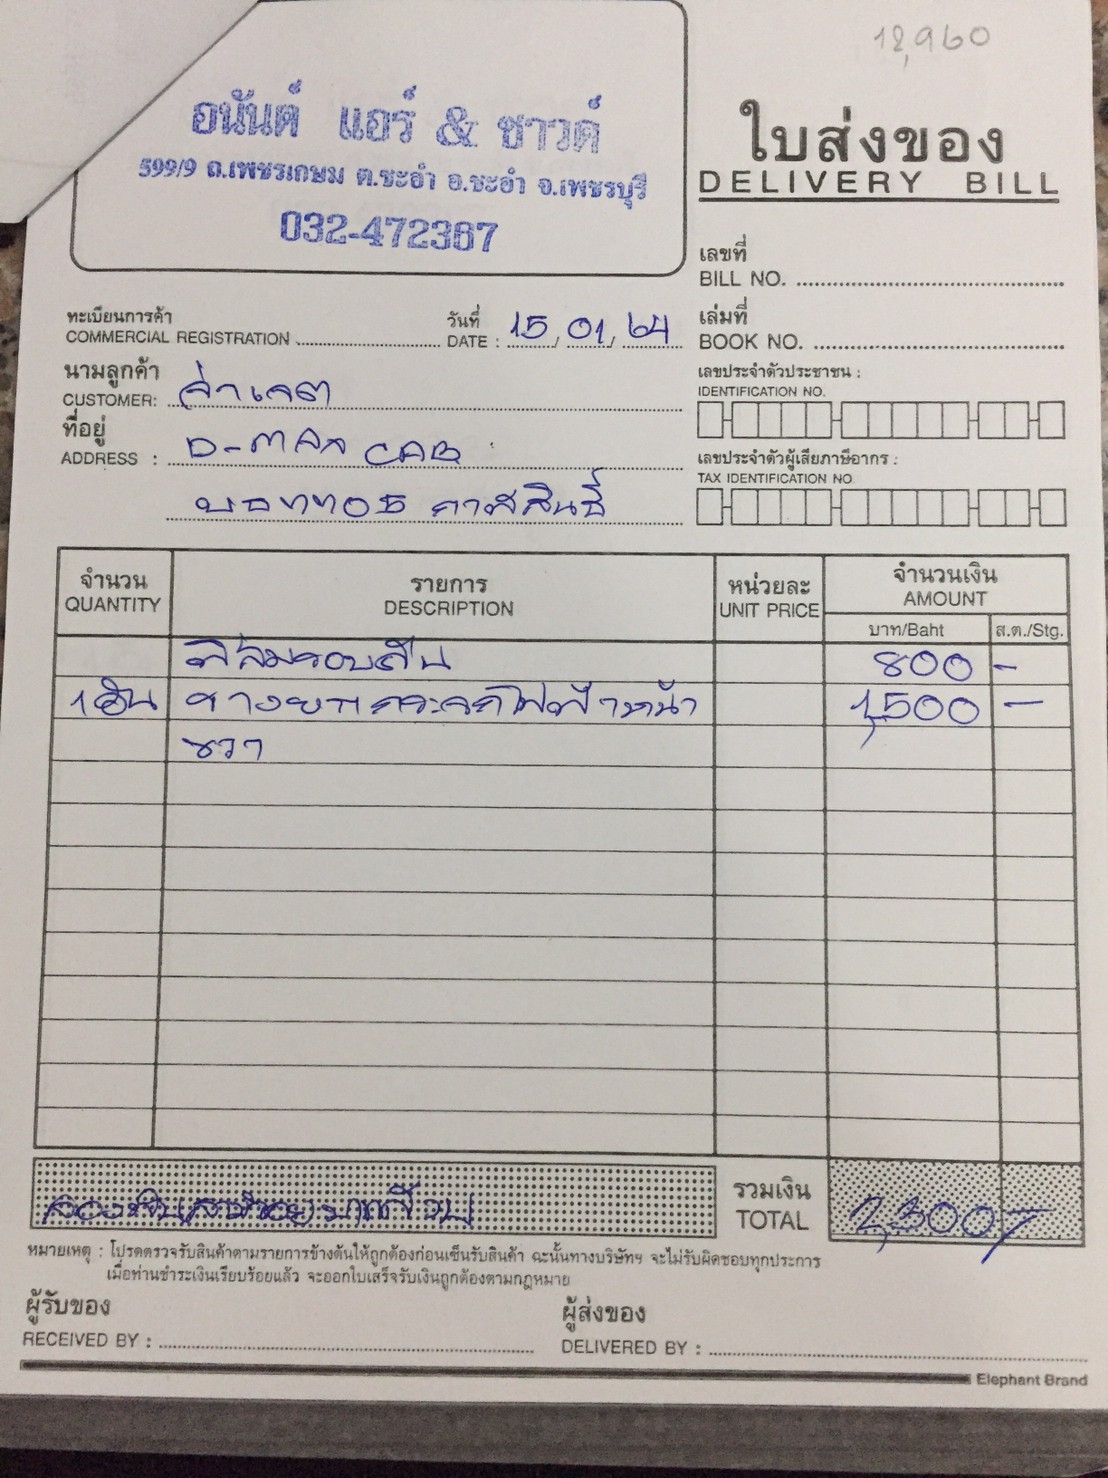 12,960
อนันต์ แอร์ & ซาวด์
599/9 ถ.เพชรเกษม ต.ชะอำ อ.ชะอำ จ.เพชรบุรี
032-472367
ใบส่งของ
DELIVERY BILL
เลขที่
BILL NO.
ทะเบียนการค้า
COMMERCIAL REGISTRATION
วันที่
DATE : 15, 01, 64
เล่มที่
BOOK NO.
นามลูกค้า
CUSTOMER:
ที่อยู่
ADDRESS : D-MAX CAB
กาฬสินธุ์
เลขประจำตัวประชาชน :
IDENTIFICATION NO.
เลขประจำตัวผู้เสียภาษีอากร :
TAX IDENTIFICATION NO.
จำนวน รายการ หน่วยละ จำนวนเงิน
QUANTITY DESCRIPTION UNIT PRICE AMOUNT
บาท/Baht ส.ต./Stg.
ฟิล์มรอบคัน 800 -
1 อัน รางยกกระจกไฟฟ้าหน้า 1,500 -
ขวา
สองพันสามร้อยบาทถ้วน
รวมเงิน
TOTAL 2,300
หมายเหตุ : โปรดตรวจรับสินค้าตามรายการข้างต้นให้ถูกต้องก่อนเซ็นรับสินค้า ฉะนั้นทางบริษัทฯ จะไม่รับผิดชอบทุกประการ
เมื่อท่านชำระเงินเรียบร้อยแล้ว จะออกใบเสร็จรับเงินถูกต้องตามกฎหมาย
ผู้รับของ
RECEIVED BY :
ผู้ส่งของ
DELIVERED BY :
Elephant Brand